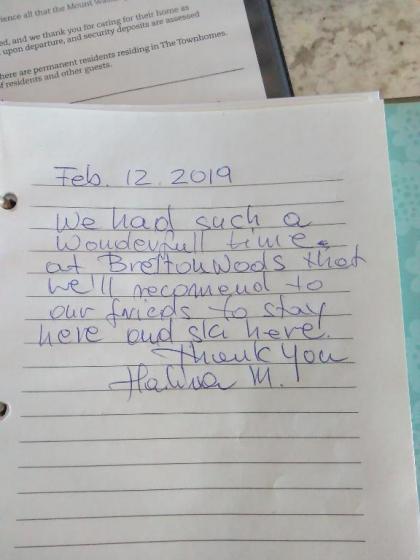 ience all that the Mount Wash
ed, and we thank you for caring for their home as
upon departure, and security deposits are assessed
here are permanent residents residing in The Townhomes.
f residents and other guests.
Feb. 12. 2019
We had such a
wonderfull time
at Bretton Woods that
we'll recpomend to
our frieds to stay
here and ski here.
Thank you
Halina M.